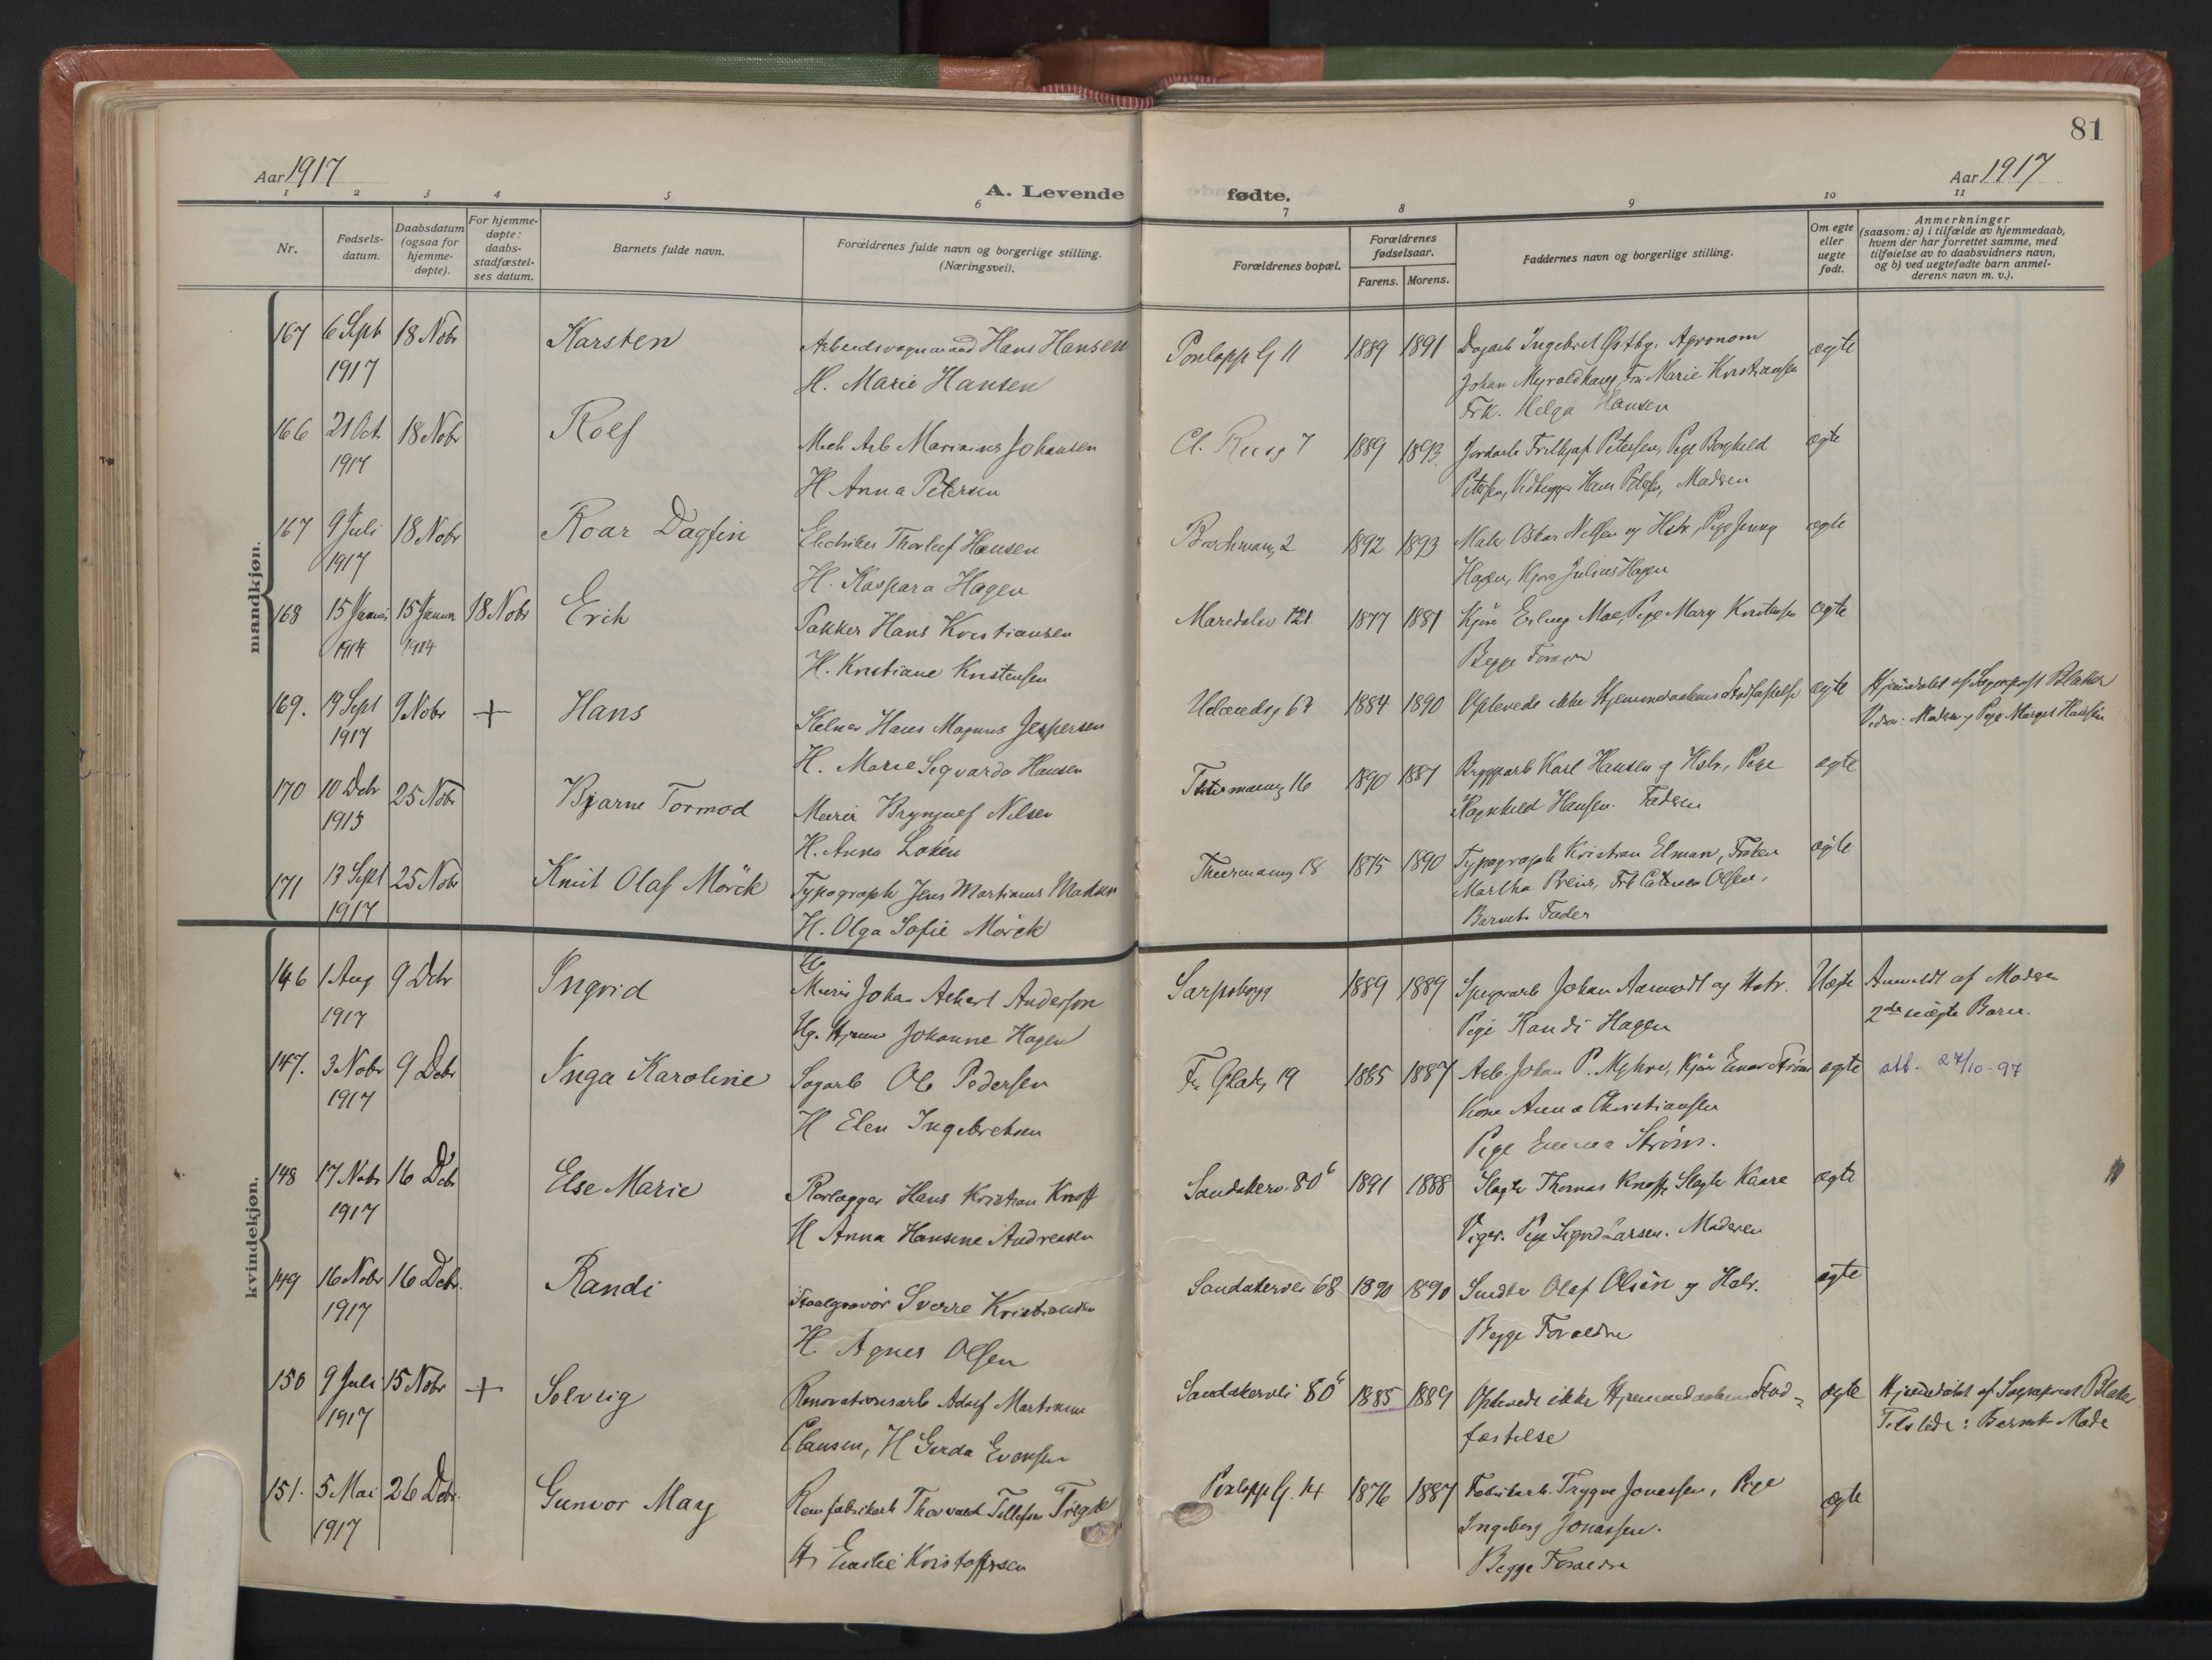 81
Aar 1917
A. Levende fødte.
Aar 1917
1 2 3 4 5 6 7 8 9 10 11
Nr.
Fødsels-
datum.
Daabsdatum
(ogsaa for
hjemme-
døpte).
For hjemme-
døpte:
daabs-
stadfæstel-
ses datum.
Barnets fulde navn.
Forældrenes fulde navn og borgerlige stilling.
(Næringsvei).
Forældrenes bopæl.
Forældrenes
fødselsaar.
Farens. Morens.
Faddernes navn og borgerlige stilling.
Om egte
eller
uegte
født.
Anmerkninger
(saasom: a) i tilfælde av hjemmedaab,
hvem der har forrettet samme, med
tilføielse av to daabsvidners navn,
og b) ved uegtefødte barn anmel-
derens navn m. v.).
mandkjøn.
167 6 Sept 18 Nobr Karsten Arbeidsvognmand Hans Hansen 11 1889 1891 Ingebret Østby, Agronom egte
1917 H. Marie Hansen Johan Myroldhaug, Fru Marie Kristiansen
Frk. Helga Hansen
166 21 Oct 18 Nobr Rolf Mek Arb Marinius Johansen 7 1889 1893 Petersen, Pige Borghild egte
1917 H Anna Petersen Petersen, Hans Petersen, Madsen
167 9 Juli 18 Nobr Roar Dagfin Elektriker Thorleif Hansen Brochmansg 2 1892 1893 Maler Oskar Nilsen og Hstr, Pige Jenny egte
1917 H. Kaspara Hagen Hagen, Kjøre Julius Hagen
168 15 Januar 15 Januar 18 Nobr Erik Pakker Hans Kristiansen Maredalsv 121 1877 1881 Kjøre Erling Moe, Pige Mary Kristensen egte
1914 1914 H. Kristiane Kristensen Begge Forældre
169. 19 Sept 9 Nobr + Hans Kelner Hans Magnus Jespersen Uelandsg 67 1884 1890 Oplevede ikke Hjemmedaabens Stadfæstelse egte Hjemdøbt af Sognepræst Blakar
1917 H. Marie Sigvarda Hansen Vidner: Moderen og Pige Margit Hansen
170 10 Debr 25 Nobr Bjarne Tormod Murer Brynjulf Nilsen 16 1890 1887 Bryggarb Karl Hansen og Hstr, Pige egte
1913 H. Anna Løken Ragnhild Hansen. Faderen
171 13 Sept 25 Nobr Knut Olaf Mörck Typograph Jens Martinius Madsen Thurmannsg 18 1875 1890 Typograph Kristian Elman, Frøken egte
1917 H. Olga Sofie Mörck Martha Preus, Frk Olsen,
Barnets Fader
kvindekjøn.
146 1 Aug 9 Debr Ingrid Murer Johan Albert Anderson Sarpsborg 1889 1889 Johan Aamodt og Hstr. Uegte Anmeldt af Moderen
1917 Ug. Johanne Hagen Pige Randi Hagen 2det uægte Barn.
147. 3 Nobr 9 Debr Inga Karoline Sagarb Ole Pedersen Fr Gladsg 19 1885 1887 Arb Johan P. Myhre, Kjøre Einar Strøm egte att. 27/10-97
1917 H Elen Ingebretsen Kone Anna Christiansen
Pige Emma Strøm.
148 17 Nobr 16 Debr Else Marie Rørlægger Hans Kristian Knoff Sandakerv. 80 6 1891 1888 Slagter Thomas Knoff, Slagter Kaare egte
1917 H Anna Hansine Andreasen Viger. Pige Sigrid Larsen. Moderen
149 16 Nobr 16 Debr. Randi Staalgravør Sverre Kristiansen Sandakervei 68 1890 1890 Olaf Olsen og Hstr. egte
1917 H Agnes Olsen Begge Forældre
150 9 Juli 15 Nobr + Solveig Renovationsarb Adolf Martinius Sandakervei 80 6 1885 1889 Oplevede ikke Hjemmedaabens Stad= egte Hjemmedøbt af Sognepræst Blakar
1917 Clausen, H Gerda Evensen fæstelse Tilstede: Barnets Mode
151. 5 Mai 26 Debr. Gunvor May Remfabrikarb Thorvald Tellefsen 14 1876 1887 Fabrikarb. Trygve Jonassen, Pige egte
1917 H. Emilie Kristoffersen Ingeborg Jonassen.
Begge Forældre